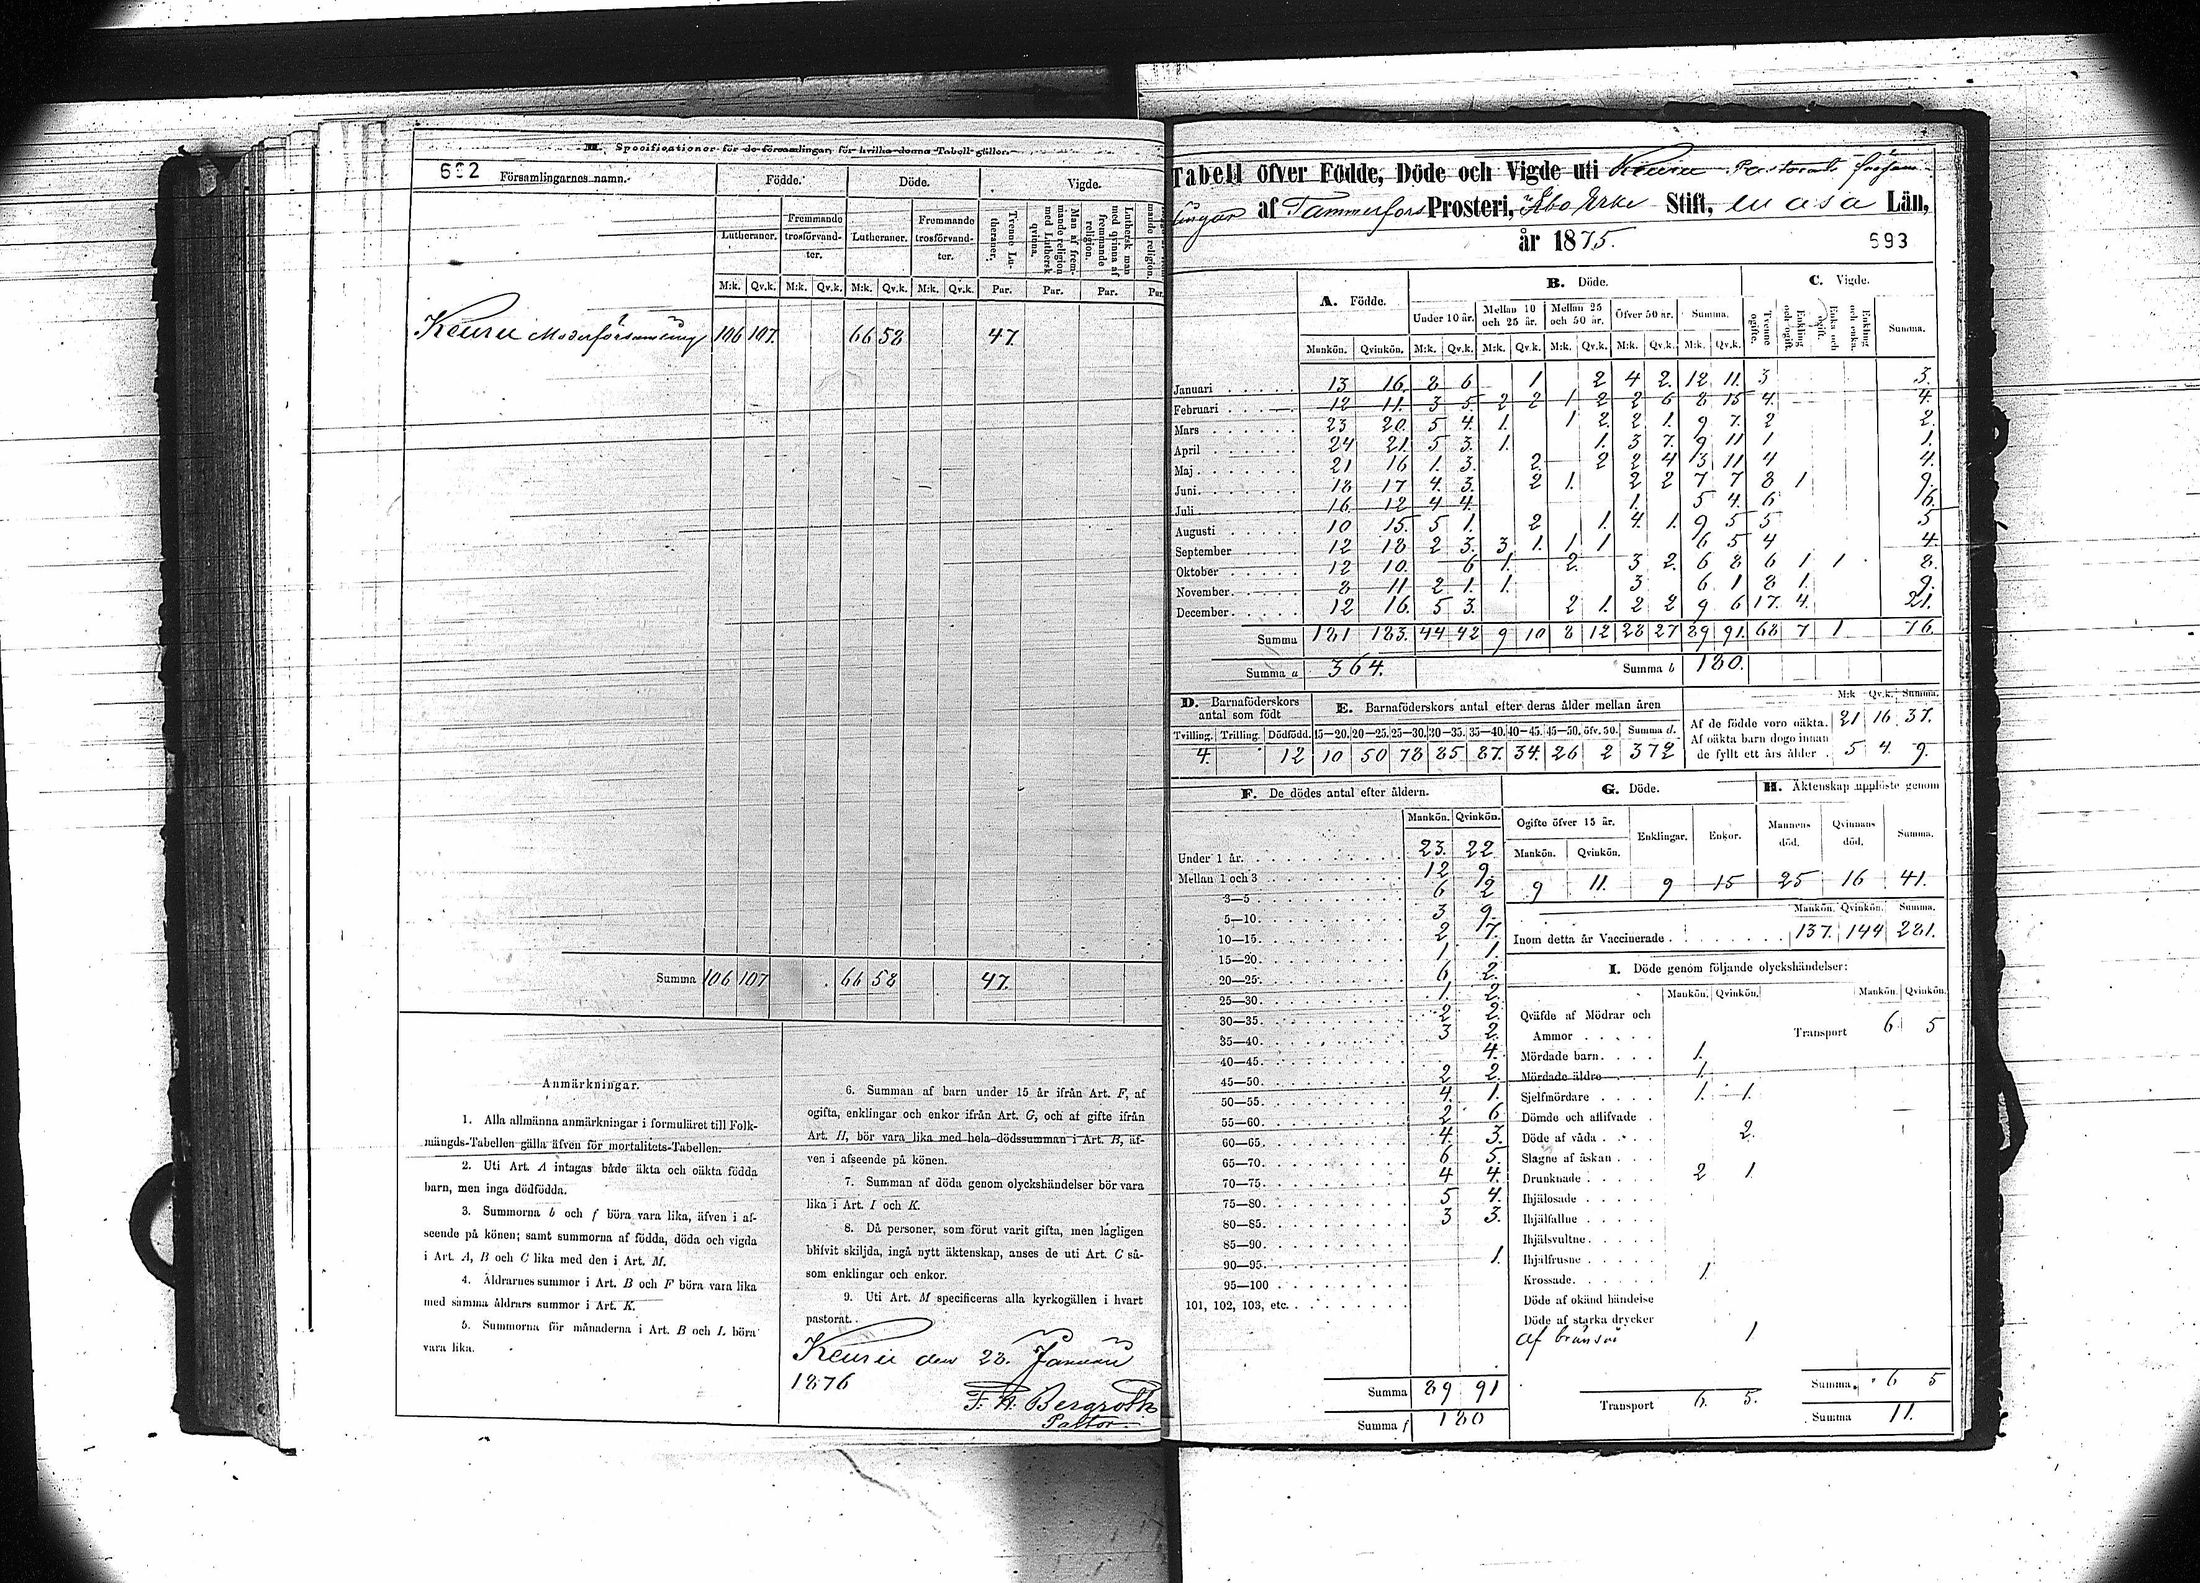 M. Specificationer för de församlingar, för hvilka denna Tabell gäller.
692 Församlingarnes namn. Födde. Döde. Vigde.
Lutheraner. Fremmande trosförvandter. Lutheraner. Fremmande trosförvandter. Tvenne Lutheraner. Man af fremmande religion med Luthersk qvinna. Luthersk man med qvinna af fremmande religion.
M:k. Qv.k. M:k. Qv.k. M:k. Qv.k. M:k. Qv.k. Par. Par. Par. Par.
Keuru Moderförsamling 106 107. 66 58 47.
Summa 106 107 66 58 47.
Anmärkningar.
1. Alla allmänna anmärkningar i formuläret till Folk-
mängds-Tabellen gälla äfven för mortalitets-Tabellen.
2. Uti Art. A intagas både äkta och oäkta födda
barn, men inga dödfödda.
3. Summorna b och f böra vara lika, äfven i af-
seende på könen; samt summorna af födda, döda och vigda
i Art. A, B och C lika med den i Art. M.
4. Åldrarnes summor i Art. B och F böra vara lika
med samma åldrars summor i Art. K.
5. Summorna för månaderna i Art. B och L böra
vara lika.
6. Summan af barn under 15 år ifrån Art. F, af
ogifta, enklingar och enkor ifrån Art. G, och af gifte ifrån
Art. H, bör vara lika med hela dödssumman i Art. B, äf-
ven i afseende på könen.
7. Summan af döda genom olyckshändelser bör vara
lika i Art. I och K.
8. Då personer, som förut varit gifta, men lagligen
blifvit skiljda, ingå nytt äktenskap, anses de uti Art. C så-
som enklingar och enkor.
9. Uti Art. M specificeras alla kyrkogällen i hvart
pastorat.
Keuru den 28. Januari
1876
F. H. Bergroth
Pastor.
Tabell öfver Födde, Döde och Vigde uti Keuru Pastorats försam-
lingar af Tammerfors Prosteri, Åbo Erke Stift, Wasa Län,
år 1875.
693
A. Födde. B. Döde. C. Vigde.
Under 10 år. Mellan 10 och 25 år. Mellan 25 och 50 år. Öfver 50 år. Summa. Tvenne ogifte. Enkling och ogift. Enka och ogift. Enkling och enka. Summa.
Mankön. Qvinkön. M:k. Qv.k. M:k. Qv.k. M:k. Qv.k. M:k. Qv.k. M:k. Qv.k.
Januari 13 16. 8 6 1 2 4 2. 12 11. 3 3.
Februari 12 11. 3 5. 2 2 1 2 2 6 8 15 4. 4.
Mars 23 20. 5 4. 1. 1 2. 2 1. 9 7. 2 2.
April 24 21. 5 3. 1. 1. 3 7. 9 11 1 1.
Maj 21 16 1. 3. 2. 2 2 4 3 11 4 4.
Juni 18 17 4. 3. 2 1. 2 2 7 7 8 1 9.
Juli 16 12 4 4. 1. 5 4. 6 6.
Augusti 10 15. 5 1. 2 1. 4. 1. 9 5 5 5
September 12 18 2 3. 3 1. 1 1 6 5 4 4.
Oktober 12 10. 6 1. 2. 3 2. 6 8 6 1 1 8.
November 8 11 2 1. 1. 3 6 1 8 1. 9.
December 12 16. 5 3. 2 1. 2 2 9 6 17. 4. 21.
Summa 181 183. 44 42 9 10 8 12 28 27 89 91. 68 7 1 76.
Summa a 364. Summa b 180.
D. Barnaföderskors antal som födt
Tvilling. Trilling. Dödfödd.
4. 12
E. Barnaföderskors antal efter deras ålder mellan åren
15—20. 20—25. 25—30. 30—35. 35—40. 40—45. 45—50. öfv. 50. Summa d.
10 50 78 85 87. 34. 26 2 372
M:k Qv.k. Summa.
Af de födde voro oäkta. 21 16 37.
Af oäkta barn dogo innan
de fyllt ett års ålder 5 4. 9.
F. De dödes antal efter åldern.
Mankön. Qvinkön.
Under 1 år. 23. 22
Mellan 1 och 3 12 9.
3—5 6 2
5—10. 3 9.
10—15. 2 7.
15—20. 1 1.
20—25. 6 2.
25—30. 1. 2.
30—35. 2 2.
35—40. 3 2.
40—45. 4.
45—50. 2 2.
50—55. 4. 1.
55—60. 2 6
60—65. 4. 3.
65—70. 6 5.
70—75. 4 4.
75—80. 5 4.
80—85. 3 3.
85—90.
90—95. 1.
95—100
101, 102, 103, etc.
Summa 89 91
Summa f 180
G. Döde.
Ogifte öfver 15 år. Enklingar. Enkor.
Mankön. Qvinkön.
9 11. 9 15
H. Äktenskap upplöste genom
Mannens död. Qvinnans död. Summa.
25 16 41.
Mankön. Qvinkön. Summa.
Inom detta år Vaccinerade 137. 144 281.
I. Döde genom följande olyckshändelser:
Mankön. Qvinkön. Mankön. Qvinkön.
Qväfde af Mödrar och
Ammor Transport 6 5
Mördade barn. 1.
Mördade äldre 1.
Sjelfmördare 1. 1.
Dömde och aflifvade
Döde af våda 2.
Slagne af åskan
Drunknade 2 1
Ihjälosade
Ihjälfallne
Ihjälsvultne.
Ihjälfrusne
Krossade. 1.
Döde af okänd händelse
Döde af starka drycker
af bränsår 1
Transport 6. 5.
Summa. 6 5
Summa 11.